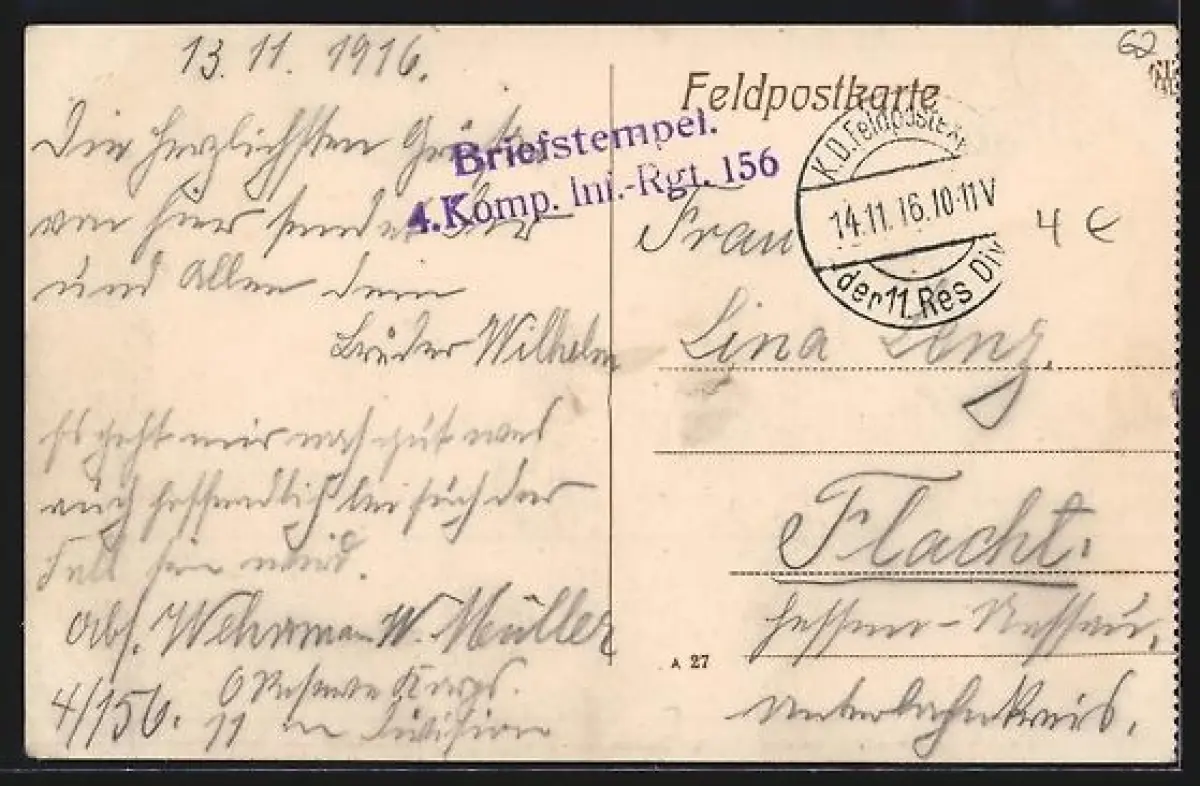 13. 11. 1916.
Die herzlichsten Grüße
von hier sendet Dir
und Allen dein
Bruder Wilhelm
Es geht mir noch gut was
auch hoffendlich bei Euch der
Fall sein wird.
Abs. Wehrman W. Müller
4/156. Reserve Korps.
11 te Division
Feldpostkarte
Briefstempel.
4.Komp. Inf.-Rgt. 156
K.D.Feldpostexp
14.11.16.10-11V
der 11. Res Div
62
4 €
Frau
Lina Lenz.
Flacht.
Hessen-Nassau,
Unterlahnkreis.
A 27